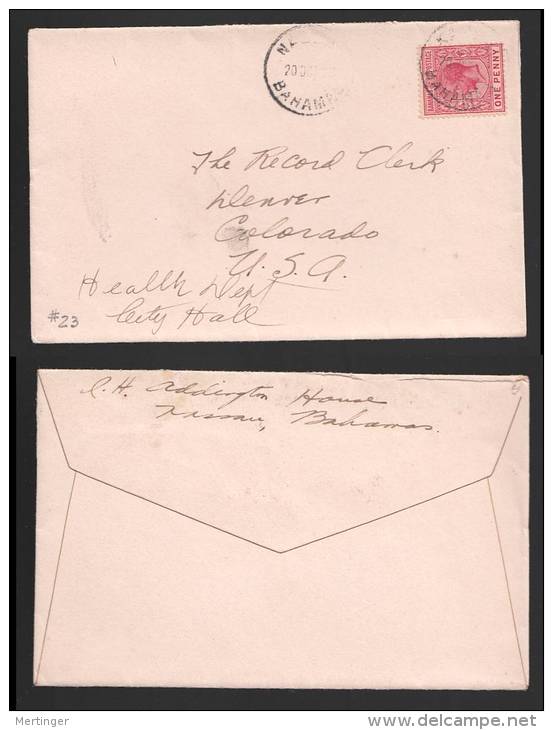 20 D
BAHAMAS
BAHAMAS POSTAGE
ONE PENNY
The Record Clerk
Denver
Colorado
U. S. A.
Health Dept
City Hall
#23
Addington House
Nassau, Bahamas.
Mertinger
www.delcampe.net